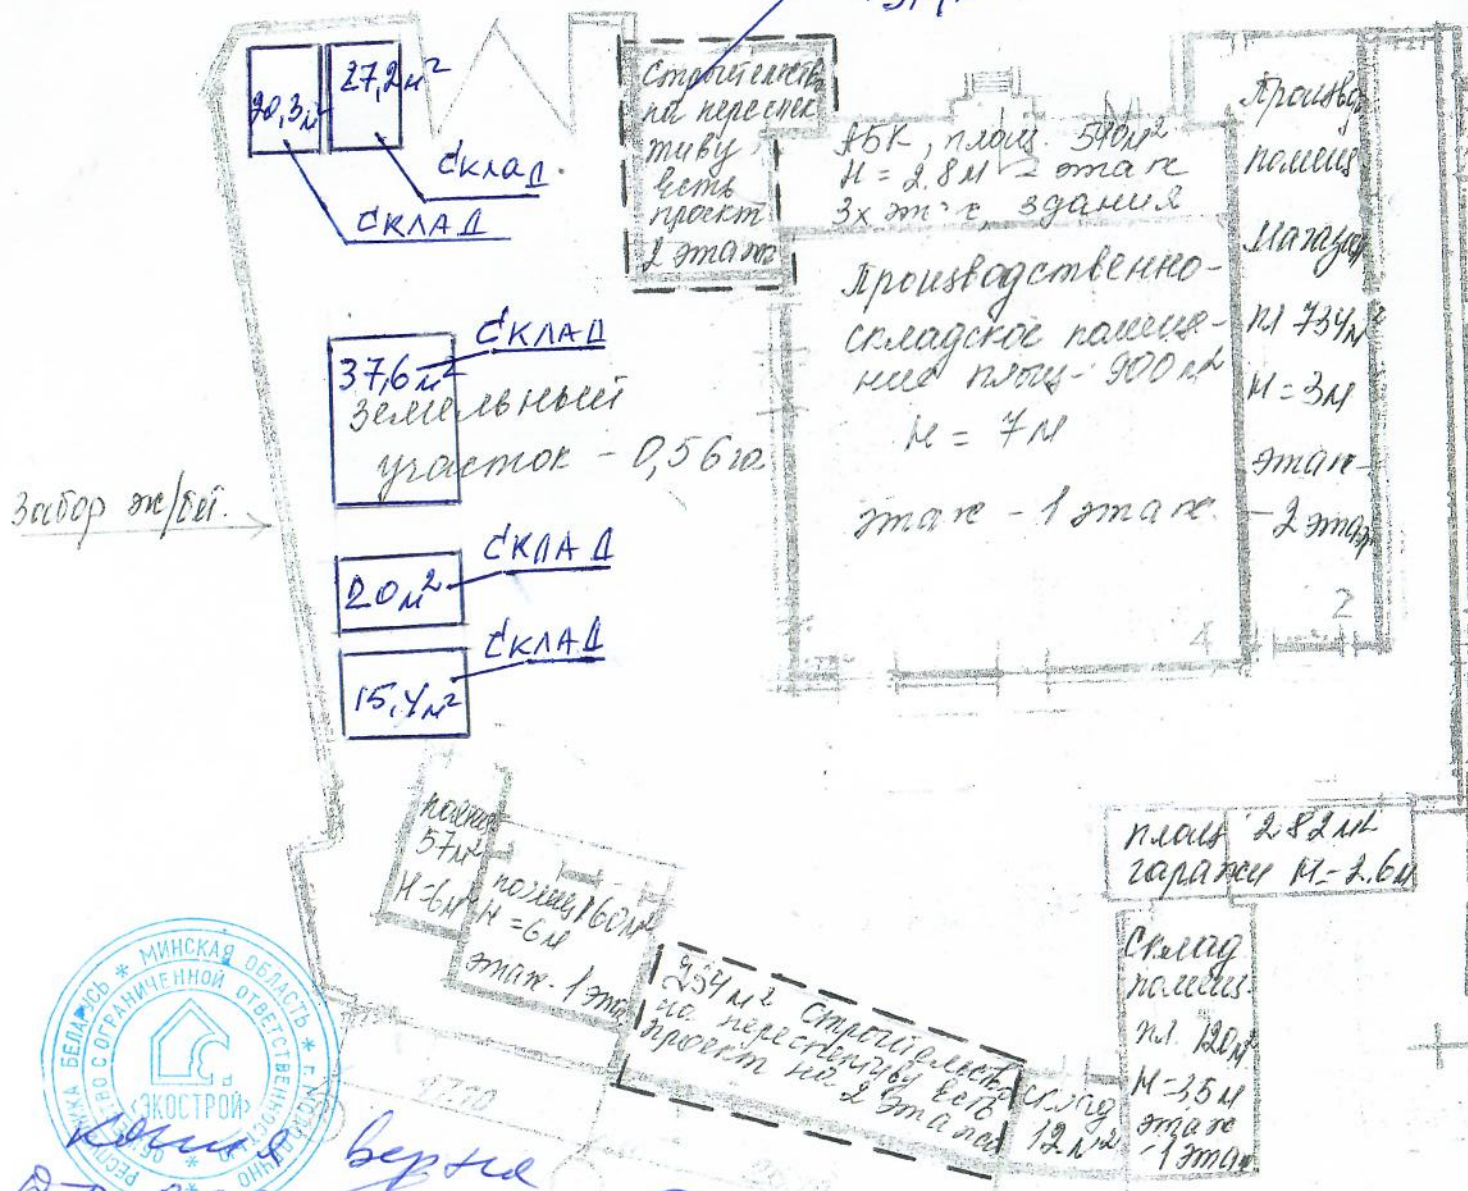 20,3 м²
27,2 м²
Склад.
СКЛАД
Строительство
на перспек
тиву
есть
проект
2 этажа
АБК, площ. 540 м²
Н = 2.8 м 2 этаж
3х эт здания
Производ
помещ
Магазин
пл 734 м²
Н = 3 м
этаж -
- 2 этаж
2
Производственно-
складское помеще-
ние площ - 900 м²
Н = 7 м
этаж - 1 этаж.
4
37,6 м²
СКЛАД
Земельный
участок - 0,56 га
Забор ж/бет.
20 м²
СКЛАД
15,4 м²
СКЛАД
помещ
57 м²
Н = 6 м
помещ 160 м²
Н = 6 м
этаж - 1 этаж
234 м² Строительство
на перспективу есть
проект на 2 этажа
склад
12 м²
площ 282 м²
гаражи Н - 2.6 м
Склад
помещ.
пл. 120 м²
Н = 3,5 м
этаж
- 1 этаж
РЕСПУБЛИКА БЕЛАРУСЬ * МИНСКАЯ ОБЛАСТЬ *
ОБЩЕСТВО С ОГРАНИЧЕННОЙ ОТВЕТСТВЕННОСТЬЮ
«ЭКОСТРОЙ»
копия верна